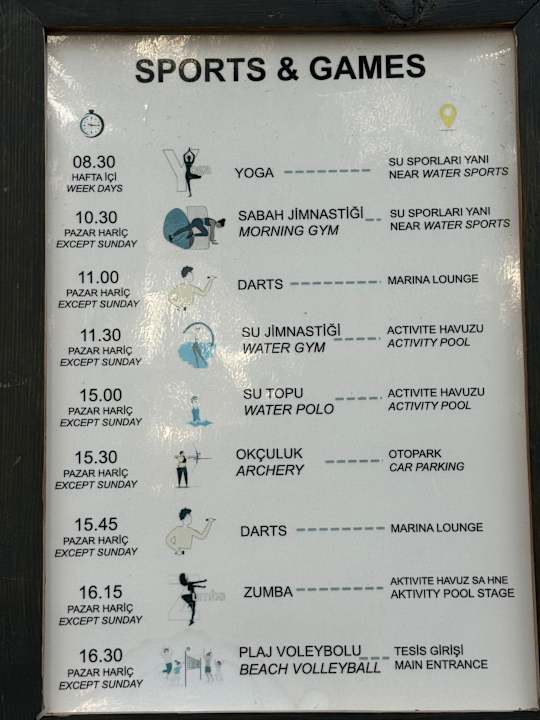 SPORTS & GAMES
08.30
HAFTA İÇİ
WEEK DAYS
YOGA
SU SPORLARI YANI
NEAR WATER SPORTS
10.30
PAZAR HARİÇ
EXCEPT SUNDAY
SABAH JİMNASTİĞİ
MORNING GYM
SU SPORLARI YANI
NEAR WATER SPORTS
11.00
PAZAR HARİÇ
EXCEPT SUNDAY
DARTS
MARINA LOUNGE
11.30
PAZAR HARİÇ
EXCEPT SUNDAY
SU JİMNASTİĞİ
WATER GYM
ACTIVITE HAVUZU
ACTIVITY POOL
15.00
PAZAR HARİÇ
EXCEPT SUNDAY
SU TOPU
WATER POLO
ACTIVITE HAVUZU
ACTIVITY POOL
15.30
PAZAR HARİÇ
EXCEPT SUNDAY
OKÇULUK
ARCHERY
OTOPARK
CAR PARKING
15.45
PAZAR HARİÇ
EXCEPT SUNDAY
DARTS
MARINA LOUNGE
16.15
PAZAR HARİÇ
EXCEPT SUNDAY
Zumba
ZUMBA
AKTIVITE HAVUZ SA HNE
AKTIVITY POOL STAGE
16.30
PAZAR HARİÇ
EXCEPT SUNDAY
PLAJ VOLEYBOLU
BEACH VOLLEYBALL
TESİS GİRİŞİ
MAIN ENTRANCE